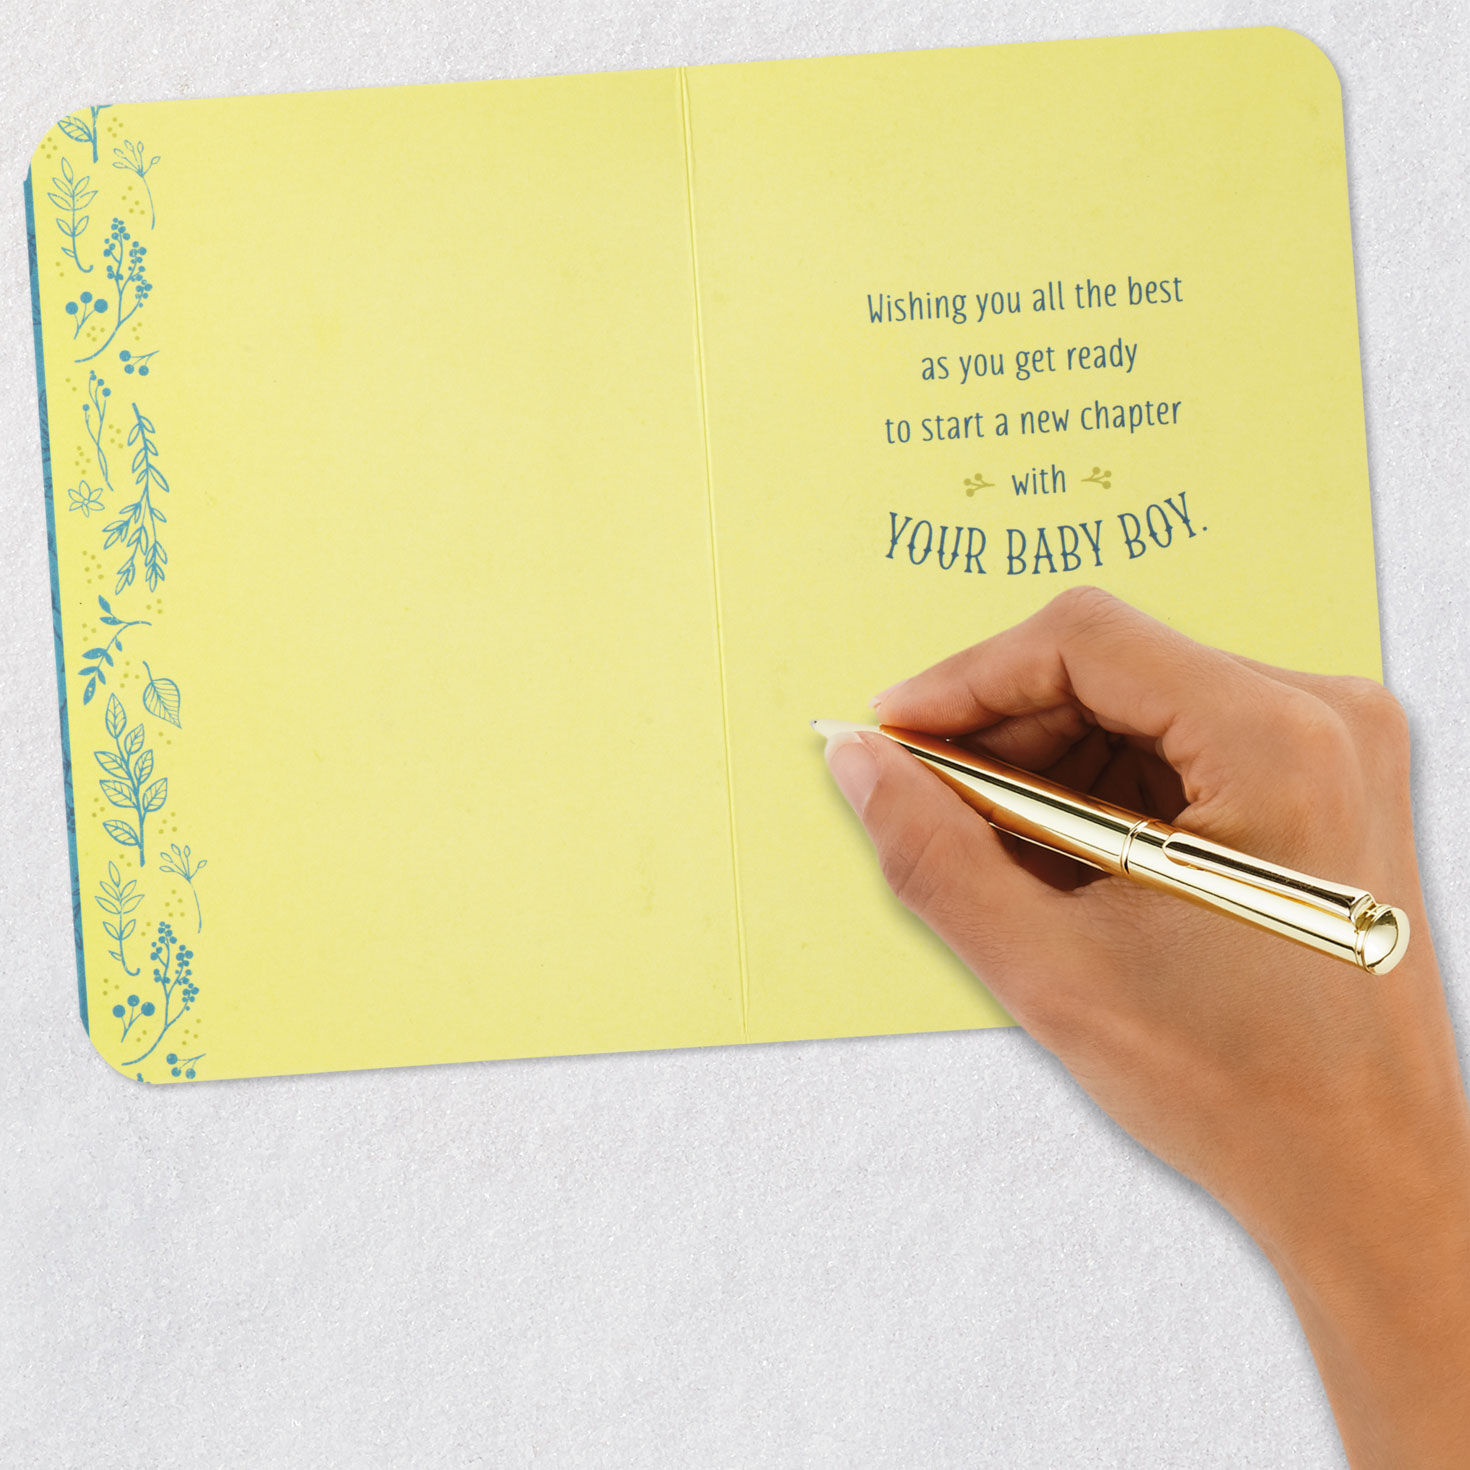 Wishing you all the best
as you get ready
to start a new chapter
with
YOUR BABY BOY.